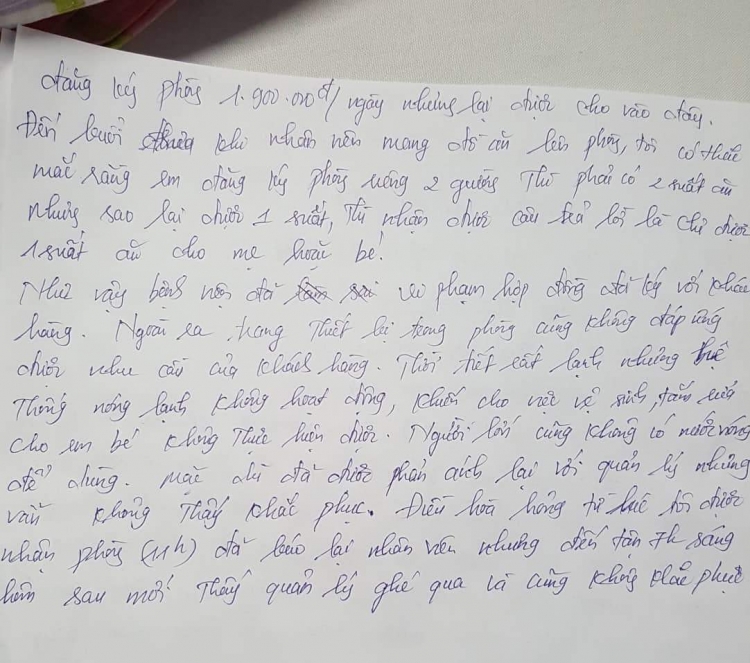 đăng ký phòng 1.900.000đ/ ngày nhưng lại được cho vào đây.
Đến buổi khi nhân viên mang đồ ăn lên phòng, tôi có thắc
mắc rằng em đăng ký phòng riêng 2 giường thì phải có 2 suất ăn
nhưng sao lại được 1 suất, thì nhận được câu trả lời là chỉ được
1 suất ăn cho mẹ hoặc bé.
Như vậy bệnh viện đã vi phạm hợp đồng đã ký với khách
hàng. Ngoài ra, trang thiết bị trong phòng cũng không đáp ứng
được nhu cầu của khách hàng. Thời tiết rất lạnh nhưng hệ
thống nóng lạnh không hoạt động, khiến cho việc vệ sinh, tắm rửa
cho em bé không thực hiện được. Người lớn cũng không có nước nóng
để dùng. mặc dù đã được phản ánh lại với quản lý nhưng
vẫn không thấy khắc phục. Điều hoà hỏng từ lúc tôi được
nhận phòng (11h) đã báo lại nhân viên nhưng đến tận 7h sáng
hôm sau mới thấy quản lý ghé qua và cũng không khắc phục